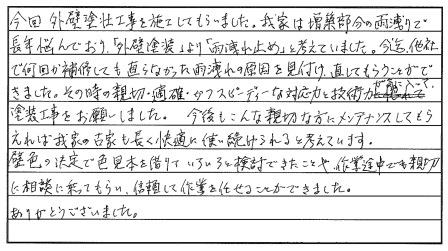 今回外壁塗装工事を施工してもらいました。我家は増築部分の雨漏りで
長年悩んでおり、「外壁塗装」より「雨洩れ止め」と考えていました。今迄、他社
で何回か補修しても直らなかった雨洩れの原因を見付け、直してもらうことがで
きました。その時の親切・適確・かつスピーディーな対応力と技術力
塗装工事をお願いしました。 今後もこんな親切な方にメンテナンスしてもら
えれば我家の古家も長く快適に使い続けられると考えています。
壁色の決定で色見本を借りていろいろと検討できたことや、作業途中でも親切
に相談に乗ってもらい、信頼して作業を任せることができました。
ありがとうございました。